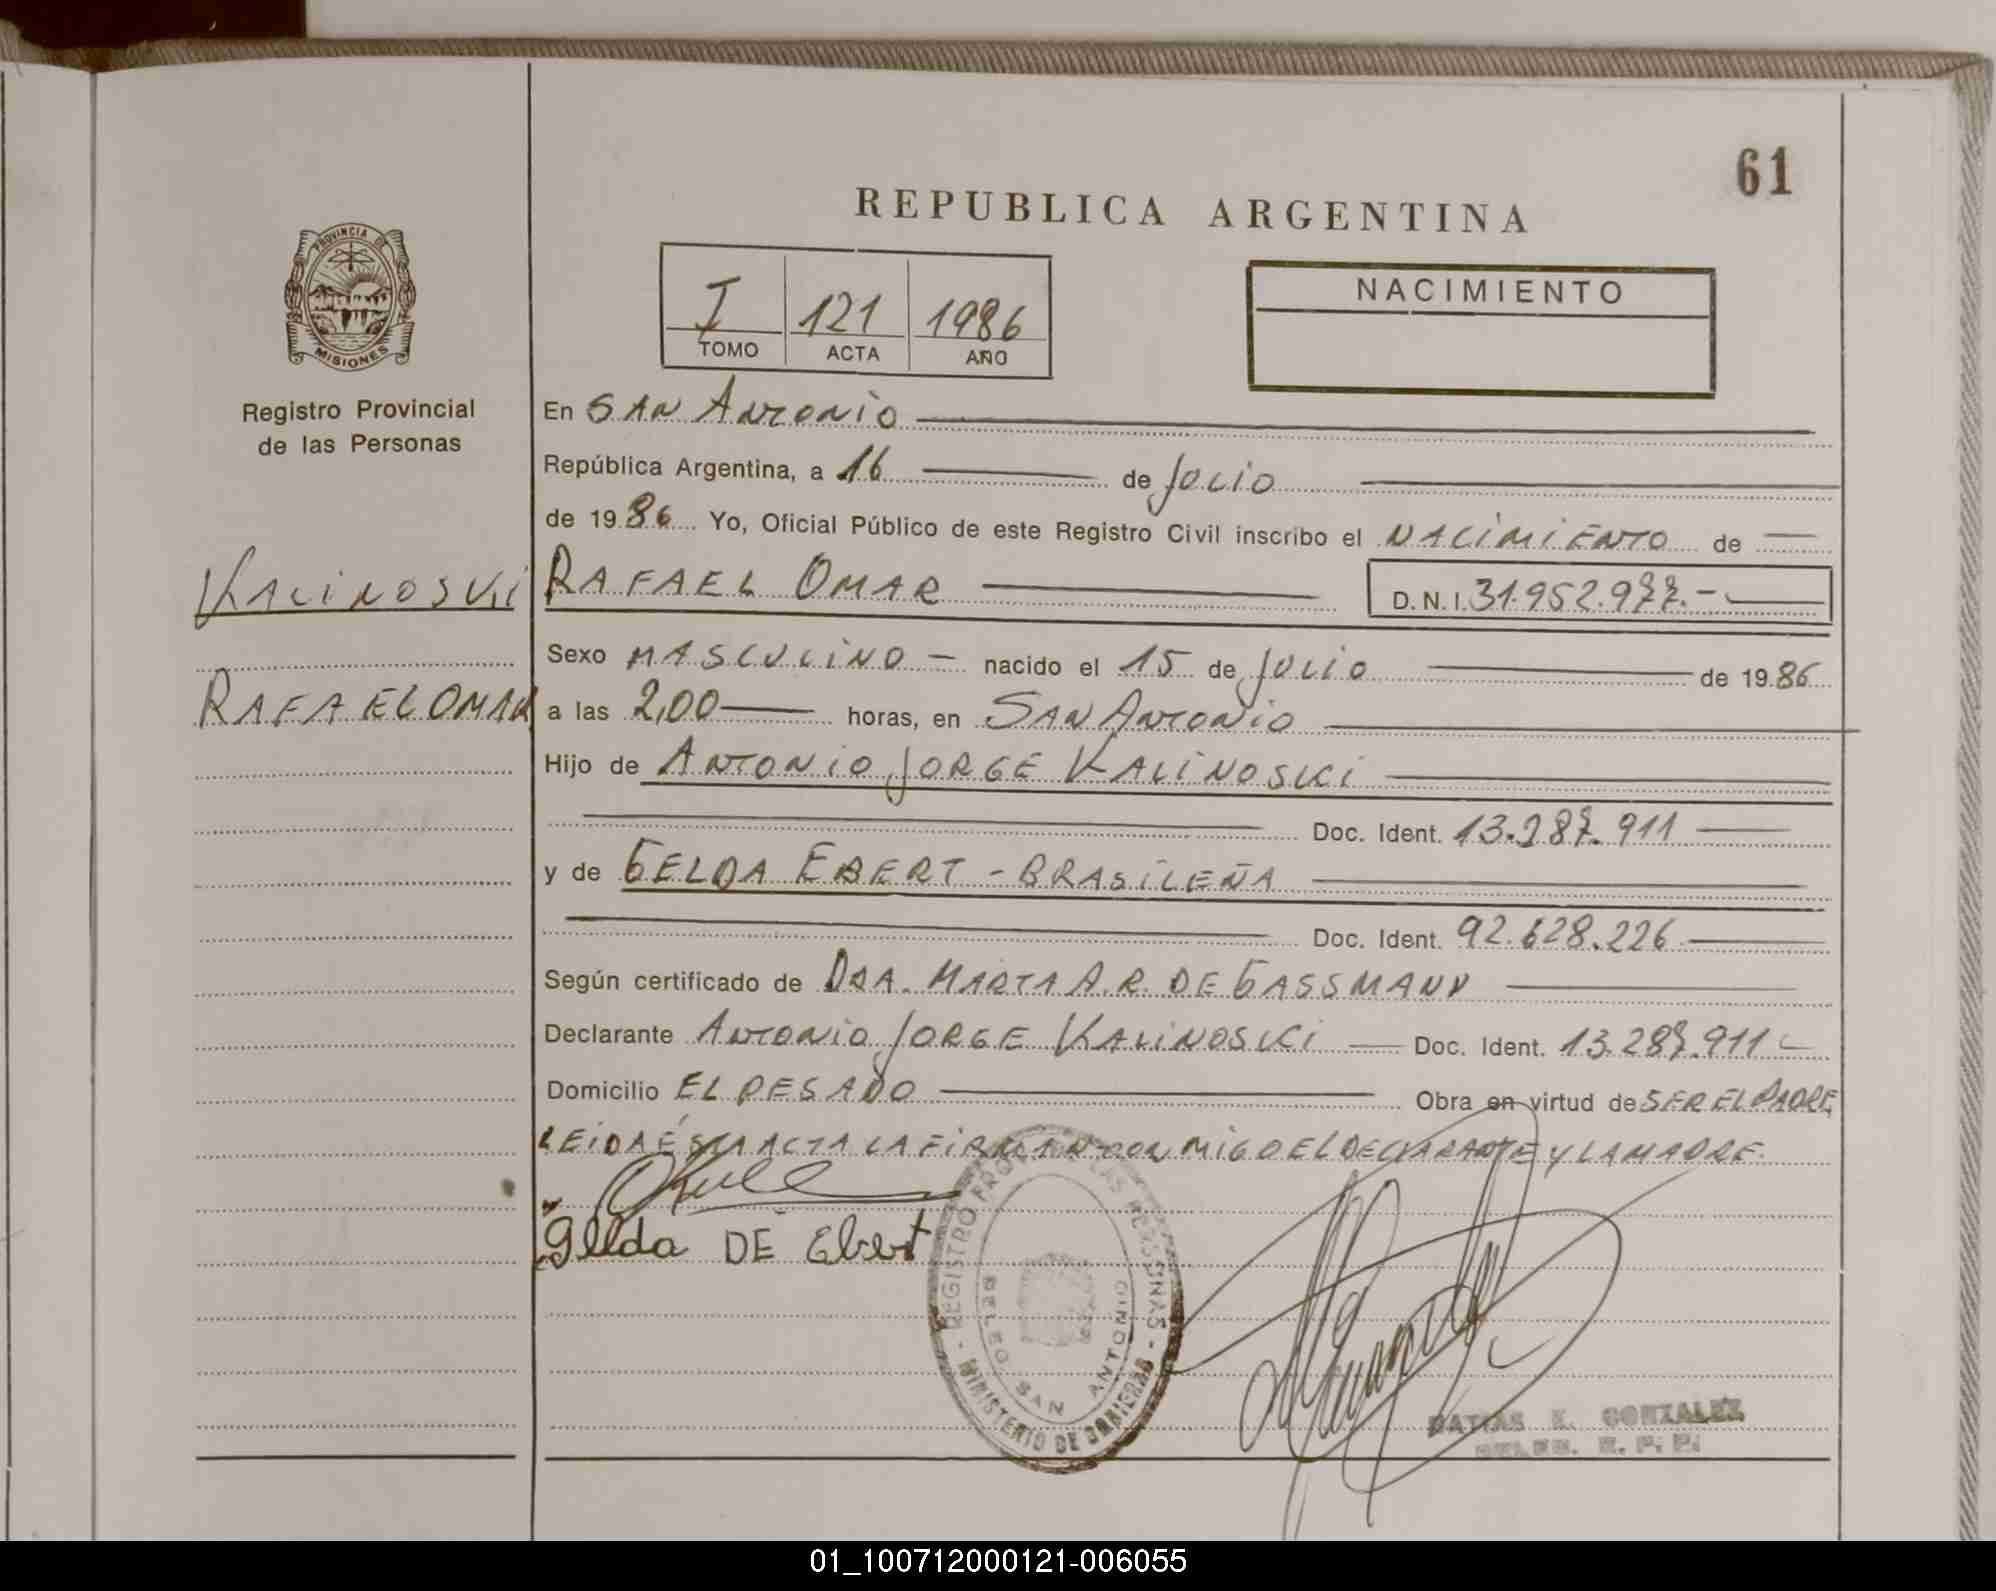 61
REPUBLICA ARGENTINA
PROVINCIA DE
MISIONES
Registro Provincial
de las Personas
I 121 1986
TOMO ACTA AÑO
NACIMIENTO
En SAN ANTONIO
República Argentina, a 16 de JULIO
de 19 86 Yo, Oficial Público de este Registro Civil inscribo el NACIMIENTO de
KALINOSKI RAFAEL OMAR D.N.I. 31.952.977.-
Sexo MASCULINO - nacido el 15 de JULIO de 19 86
RAFAEL OMAR a las 2,00 horas, en SAN ANTONIO
Hijo de ANTONIO JORGE KALINOSKI
Doc. Ident. 13.287.911
y de GELDA EBERT - BRASILEÑA
Doc. Ident. 92.628.226
Según certificado de DRA. MARTA A.R. DE GASSMANN
Declarante ANTONIO JORGE KALINOSKI Doc. Ident. 13.287.911
Domicilio EL PESADO Obra en virtud de SER EL PADRE,
LEIDA ÉSTA ACTA LA FIRMAN CON MIGO EL DECLARANTE Y LA MADRE.
gelda DE Ebert
REGISTRO PROV. DE LAS PERSONAS
DELEG. SAN ANTONIO
- MINISTERIO DE GOBIERNO -
MATIAS E. GONZALEZ
DELEG. R. P. P.
01_100712000121-006055